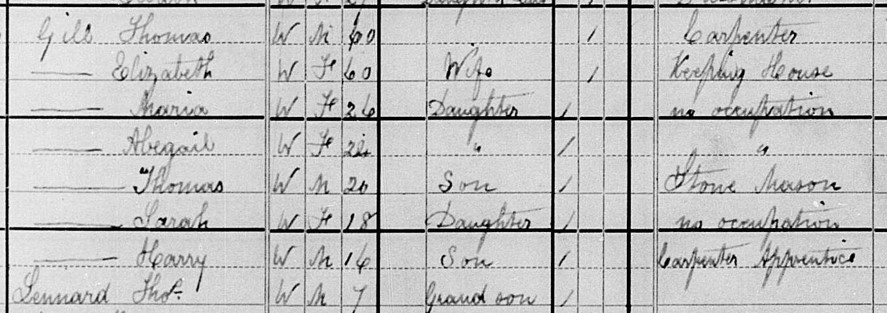 Gill Thomas W M 60 / Carpenter
—— Elizabeth W F 60 Wife / Keeping House
—— Maria W F 26 Daughter / no occupation
—— Abegail W F 24 " / "
—— Thomas W M 20 Son / Stone Mason
—— Sarah W F 18 Daughter / no occupation
—— Harry W M 16 Son / Carpenter Apprentice
Lennard Thos. W M 7 Grand son /